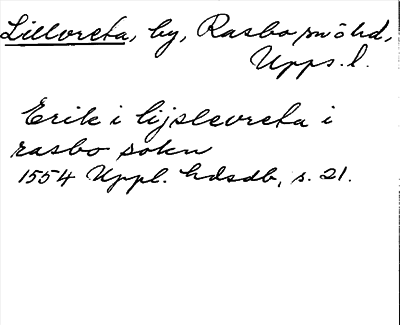 Lillvreta, by, Rasbo sn o hd,
Upps. l.
Erik i lijslevreta i
rasbo sokn
1554 Uppl. hdsdb, s. 21.